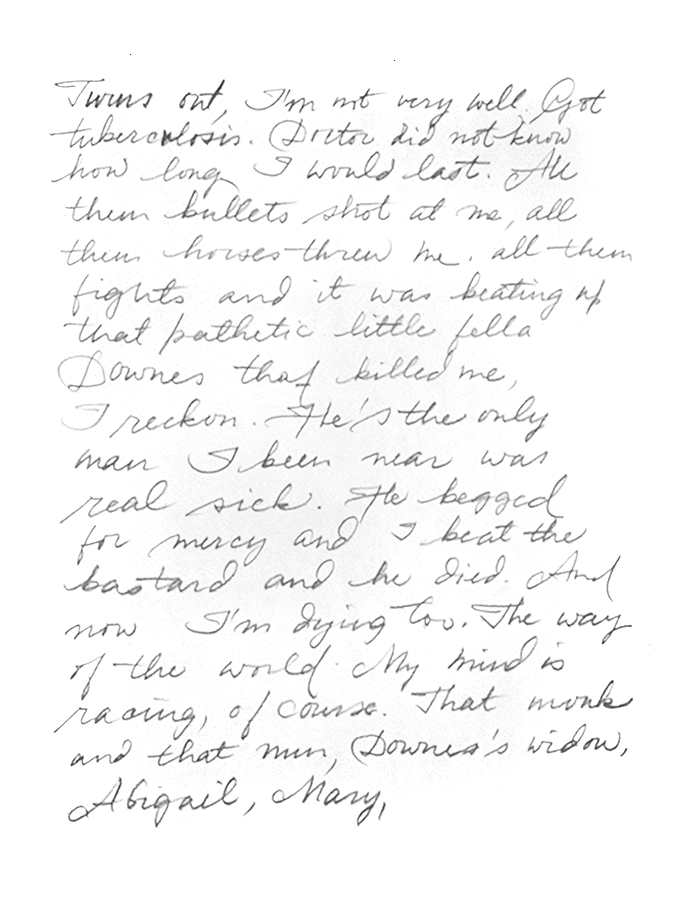 Turns out, I'm not very well. Got
tuberculosis. Doctor did not know
how long I would last. All
them bullets shot at me, all
them horses threw me. all them
fights and it was beating up
that pathetic little fella
Downes that killed me,
I reckon. He's the only
man I been near was
real sick. He begged
for mercy and I beat the
bastard and he died. And
now I'm dying too. The way
of the world. My mind is
racing, of course. That monk
and that nun, Downes's widow,
Abigail, Mary,